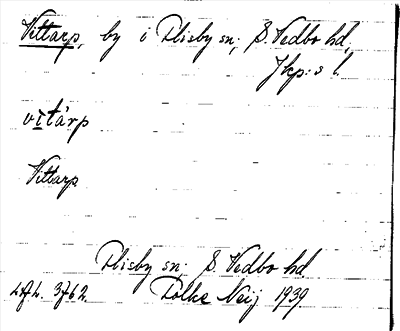 Vittarp, by i Flisby sn; S. Vedbo hd,
Jkp:s l.
vìtárp
Vittarp
Flisby sn; S. Vedbo hd
3762. Folke Neij 1939.